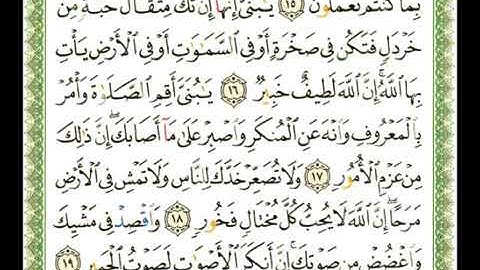 بِمَا كُنتُمْ تَعْمَلُونَ ١٥ يَٰبُنَىَّ إِنَّهَآ إِن تَكُ مِثْقَالَ حَبَّةٍ مِّنْ
خَرْدَلٍ فَتَكُن فِى صَخْرَةٍ أَوْ فِى ٱلسَّمَٰوَٰتِ أَوْ فِى ٱلْأَرْضِ يَأْتِ
بِهَا ٱللَّهُ ۚ إِنَّ ٱللَّهَ لَطِيفٌ خَبِيرٌ ١٦ يَٰبُنَىَّ أَقِمِ ٱلصَّلَوٰةَ وَأْمُرْ
بِٱلْمَعْرُوفِ وَٱنْهَ عَنِ ٱلْمُنكَرِ وَٱصْبِرْ عَلَىٰ مَآ أَصَابَكَ ۖ إِنَّ ذَٰلِكَ
مِنْ عَزْمِ ٱلْأُمُورِ ١٧ وَلَا تُصَعِّرْ خَدَّكَ لِلنَّاسِ وَلَا تَمْشِ فِى ٱلْأَرْضِ
مَرَحًا ۖ إِنَّ ٱللَّهَ لَا يُحِبُّ كُلَّ مُخْتَالٍ فَخُورٍ ١٨ وَٱقْصِدْ فِى مَشْيِكَ
وَٱغْضُضْ مِن صَوْتِكَ ۚ إِنَّ أَنكَرَ ٱلْأَصْوَٰتِ لَصَوْتُ ٱلْحَمِيرِ ١٩